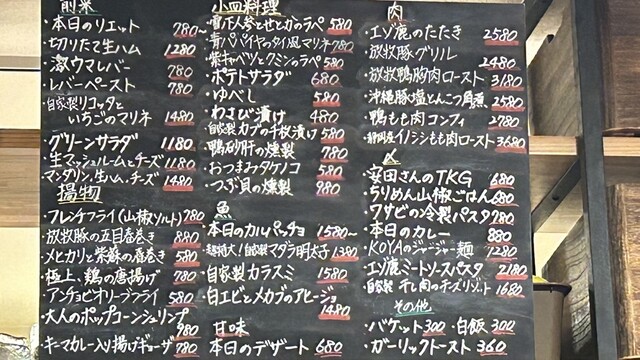 前菜
・本日のリエット 780~
・切りたて生ハム 1280
・激ウマレバー 780
・レバーペースト 780
・自家製リコッタと
いちごのマリネ 1480
・グリーンサラダ 1180
・生マッシュルームとチーズ 1180
・マンダリン、生ハム、チーズ 1480
揚物
・フレンチフライ(山椒ソルト) 780
・放牧豚の五目春巻き 880
・メヒカリと紫蘇の春巻き 580
・極上、鶏の唐揚げ 780
・アンチョビオリーブフライ 580
・大人のポップコーンシュリンプ
980
・キーマカレー入り揚げギョーザ 780
小皿料理
・雪下人参とせとかのラペ 580
・青パパイヤのタイ風マリネ 780
・紫キャベツとクミンのラペ 580
・ポテトサラダ 680
・ゆべし 580
・わさび漬け 480
・自家製カブの千枚漬け 580
・鴨砂肝の燻製 780
・おつまみタケノコ 580
・つぶ貝の燻製 980
魚
・本日のカルパッチョ 1580~
・超特大!自家製マダラ明太子 1380
・自家製カラスミ 1580
・白エビとメカブのアヒージョ
1480
甘味
・本日のデザート 680
肉
・エゾ鹿のたたき 2580
・放牧豚グリル 2480
・放牧鴨胸肉ロースト 3180
・沖縄豚塩とんこつ角煮 2580
・鴨もも肉コンフィ 2780
・静岡産イノシシもも肉ロースト 3680
〆
・安田さんのTKG 680
・ちりめん山椒ごはん 680
・ワサビの冷製パスタ 780
・本日のカレー 880
・KOYAのジャージャー麺 1280
・エゾ鹿ミートソースパスタ 2180
・自家製干し肉のチーズリゾット 1680
その他
・バケット 300 ・白飯 300
・ガーリックトースト 360